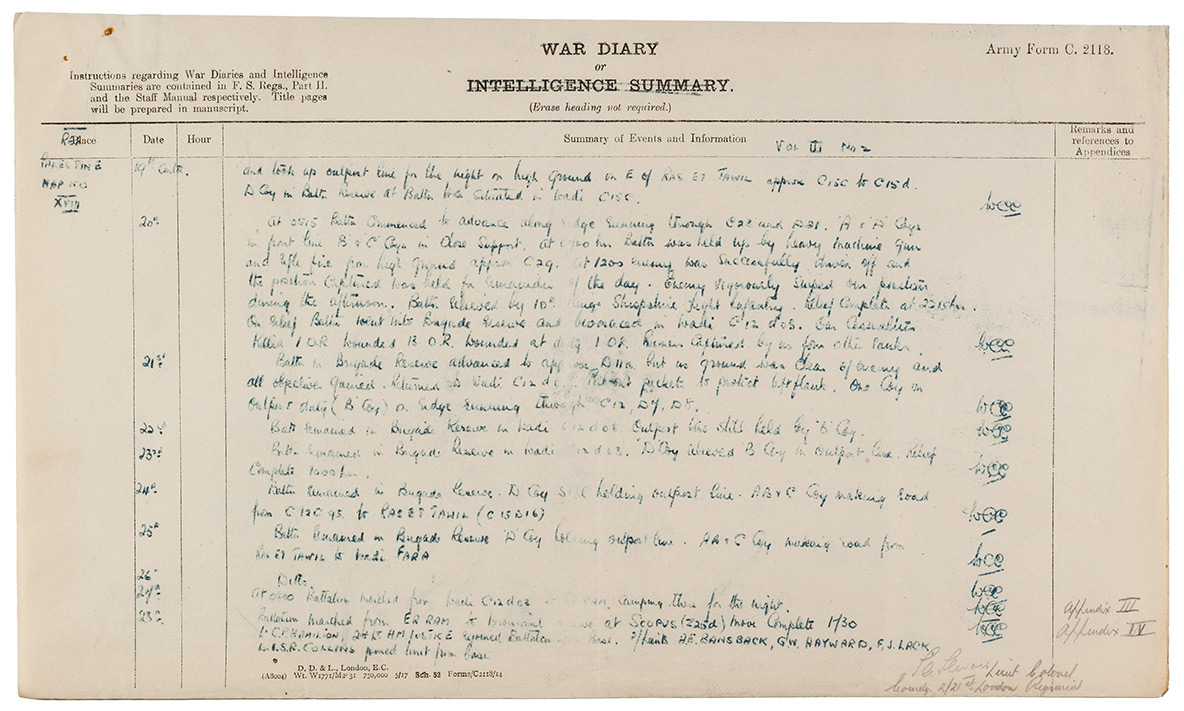 WAR DIARY
or
INTELLIGENCE SUMMARY.
(Erase heading not required.)
Army Form C. 2118.
Instructions regarding War Diaries and Intelligence
Summaries are contained in F. S. Regs., Part II.
and the Staff Manual respectively. Title pages
will be prepared in manuscript.
Place Date Hour Summary of Events and Information Remarks and references to Appendices
VOL III No 2
PALESTINE
MAP NO
XVIII
19th Contd. and took up outpost line for the night on high ground on E of RAS ET TAWIL approx C15c to C15d.
D Coy in Battn Reserve at Battn situated in Wadi C15c.
20th At 0515 Battn commenced to advance along ridge running through C22 and D21. 'A' & 'D' Coys
in front line B & C Coys in Close Support. At Battn was held up by heavy machine gun
and rifle fire from high ground approx C29. At 1200 enemy was successfully driven off and
the position captured was held for remainder of the day. Enemy vigorously sniped our position
during the afternoon. Battn relieved by 10th Kings Shropshire Light Infantry. Relief complete at 2215 hrs.
On relief Battn went into Brigade Reserve and bivouaced in Wadi C12d03. Our Casualties
Killed 1 O.R. wounded 13 O.R. wounded at duty 1 O.R. captured by us
21st Battn in Brigade Reserve advanced to approx D11a but as ground was clear of enemy and
all objectives gained. Returned to Wadi C12d picket to protect left flank. One Coy on
Outpost duty ('B' Coy) on ridge running through C12, D7, D8.
22nd Battn remained in Brigade Reserve in Wadi C12d03. Outpost line still held by 'B' Coy.
23rd Battn remained in Brigade Reserve in Wadi C12d03. 'D' Coy relieved B Coy in outpost line. Relief
complete
24th Battn remained in Brigade Reserve. D Coy still holding outpost line. A B & C Coy making road
from C12C93 to RAS ET TAWIL (C15D16)
25th Battn remained in Brigade Reserve 'D' Coy holding outpost line. A B & C Coy making road from
RAS ET TAWIL to Wadi FARA
26th Ditto
27th At Battalion marched from Wadi C12d03 camping there for the night.
28th Battalion marched from ER RAM to at SCOPUS (Z25d) move complete 1730 Appendix III
HAMILTON, JUSTICE rejoined Battalion H.E. BANSBACK, G.W. HAYWARD, F.J. LACK, Appendix IV
COLLINS joined unit from base
D. D. & L., London, E.C.
(A8004) Wt. W1771/M2031 750,000 5/17 Sch. 52 Forms/C2118/14
Lieut Colonel
Comdg 2/21st London Regiment